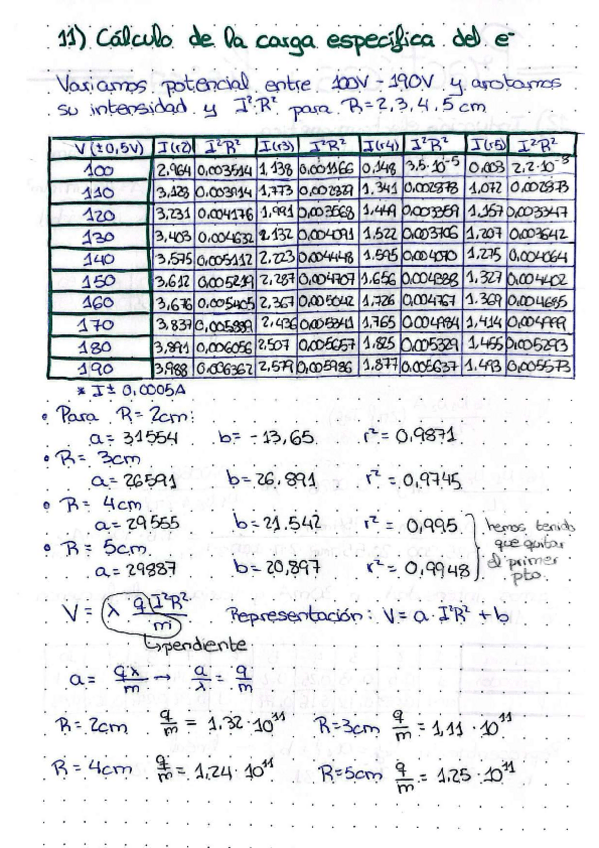 11) Cálculo de la carga específica del e-
Variamos potencial entre 100V - 190V y anotamos
su intensidad y I²R² para R=2,3,4,5 cm
V(±0,5V) I(r2) I²R² I(r3) I²R² I(r4) I²R² I(r5) I²R²
100 2,964 0,003514 1,138 0,001166 0,148 3,5·10⁻⁵ 0,003 2,2·10⁻⁸
110 3,128 0,003914 1,773 0,002829 1,341 0,002878 1,072 0,002873
120 3,231 0,004176 1,991 0,003568 1,449 0,003359 1,157 0,003347
130 3,403 0,004632 2,132 0,004091 1,522 0,003706 1,207 0,003642
140 3,575 0,005112 2,223 0,004448 1,595 0,004070 1,275 0,004064
150 3,612 0,005219 2,287 0,004707 1,656 0,004388 1,327 0,004402
160 3,676 0,005405 2,367 0,005042 1,726 0,004767 1,369 0,004685
170 3,837 0,005889 2,436 0,005341 1,765 0,004984 1,414 0,004999
180 3,891 0,006056 2,507 0,005657 1,825 0,005329 1,455 0,005293
190 3,988 0,006362 2,579 0,005986 1,877 0,005637 1,493 0,005573
* I ± 0,0005A
• Para R=2cm:
a= 31554 b= -13,65 r²= 0,9871
• R= 3cm
a= 26591 b=26,891 r²= 0,9745
• R= 4cm
a= 29555 b=21,542 r²= 0,995
• R= 5cm
a= 29887 b=20,897 r²= 0,9948
hemos tenido
que quitar
el primer
pto.
V= λ · q I²R² / m Representación: V= a·I²R² + b
↳pendiente
a= qλ/m → a/λ = q/m
R=2cm q/m = 1,32·10¹¹ R=3cm q/m = 1,11·10¹¹
R=4cm q/m = 1,24·10¹¹ R=5cm q/m = 1,25·10¹¹